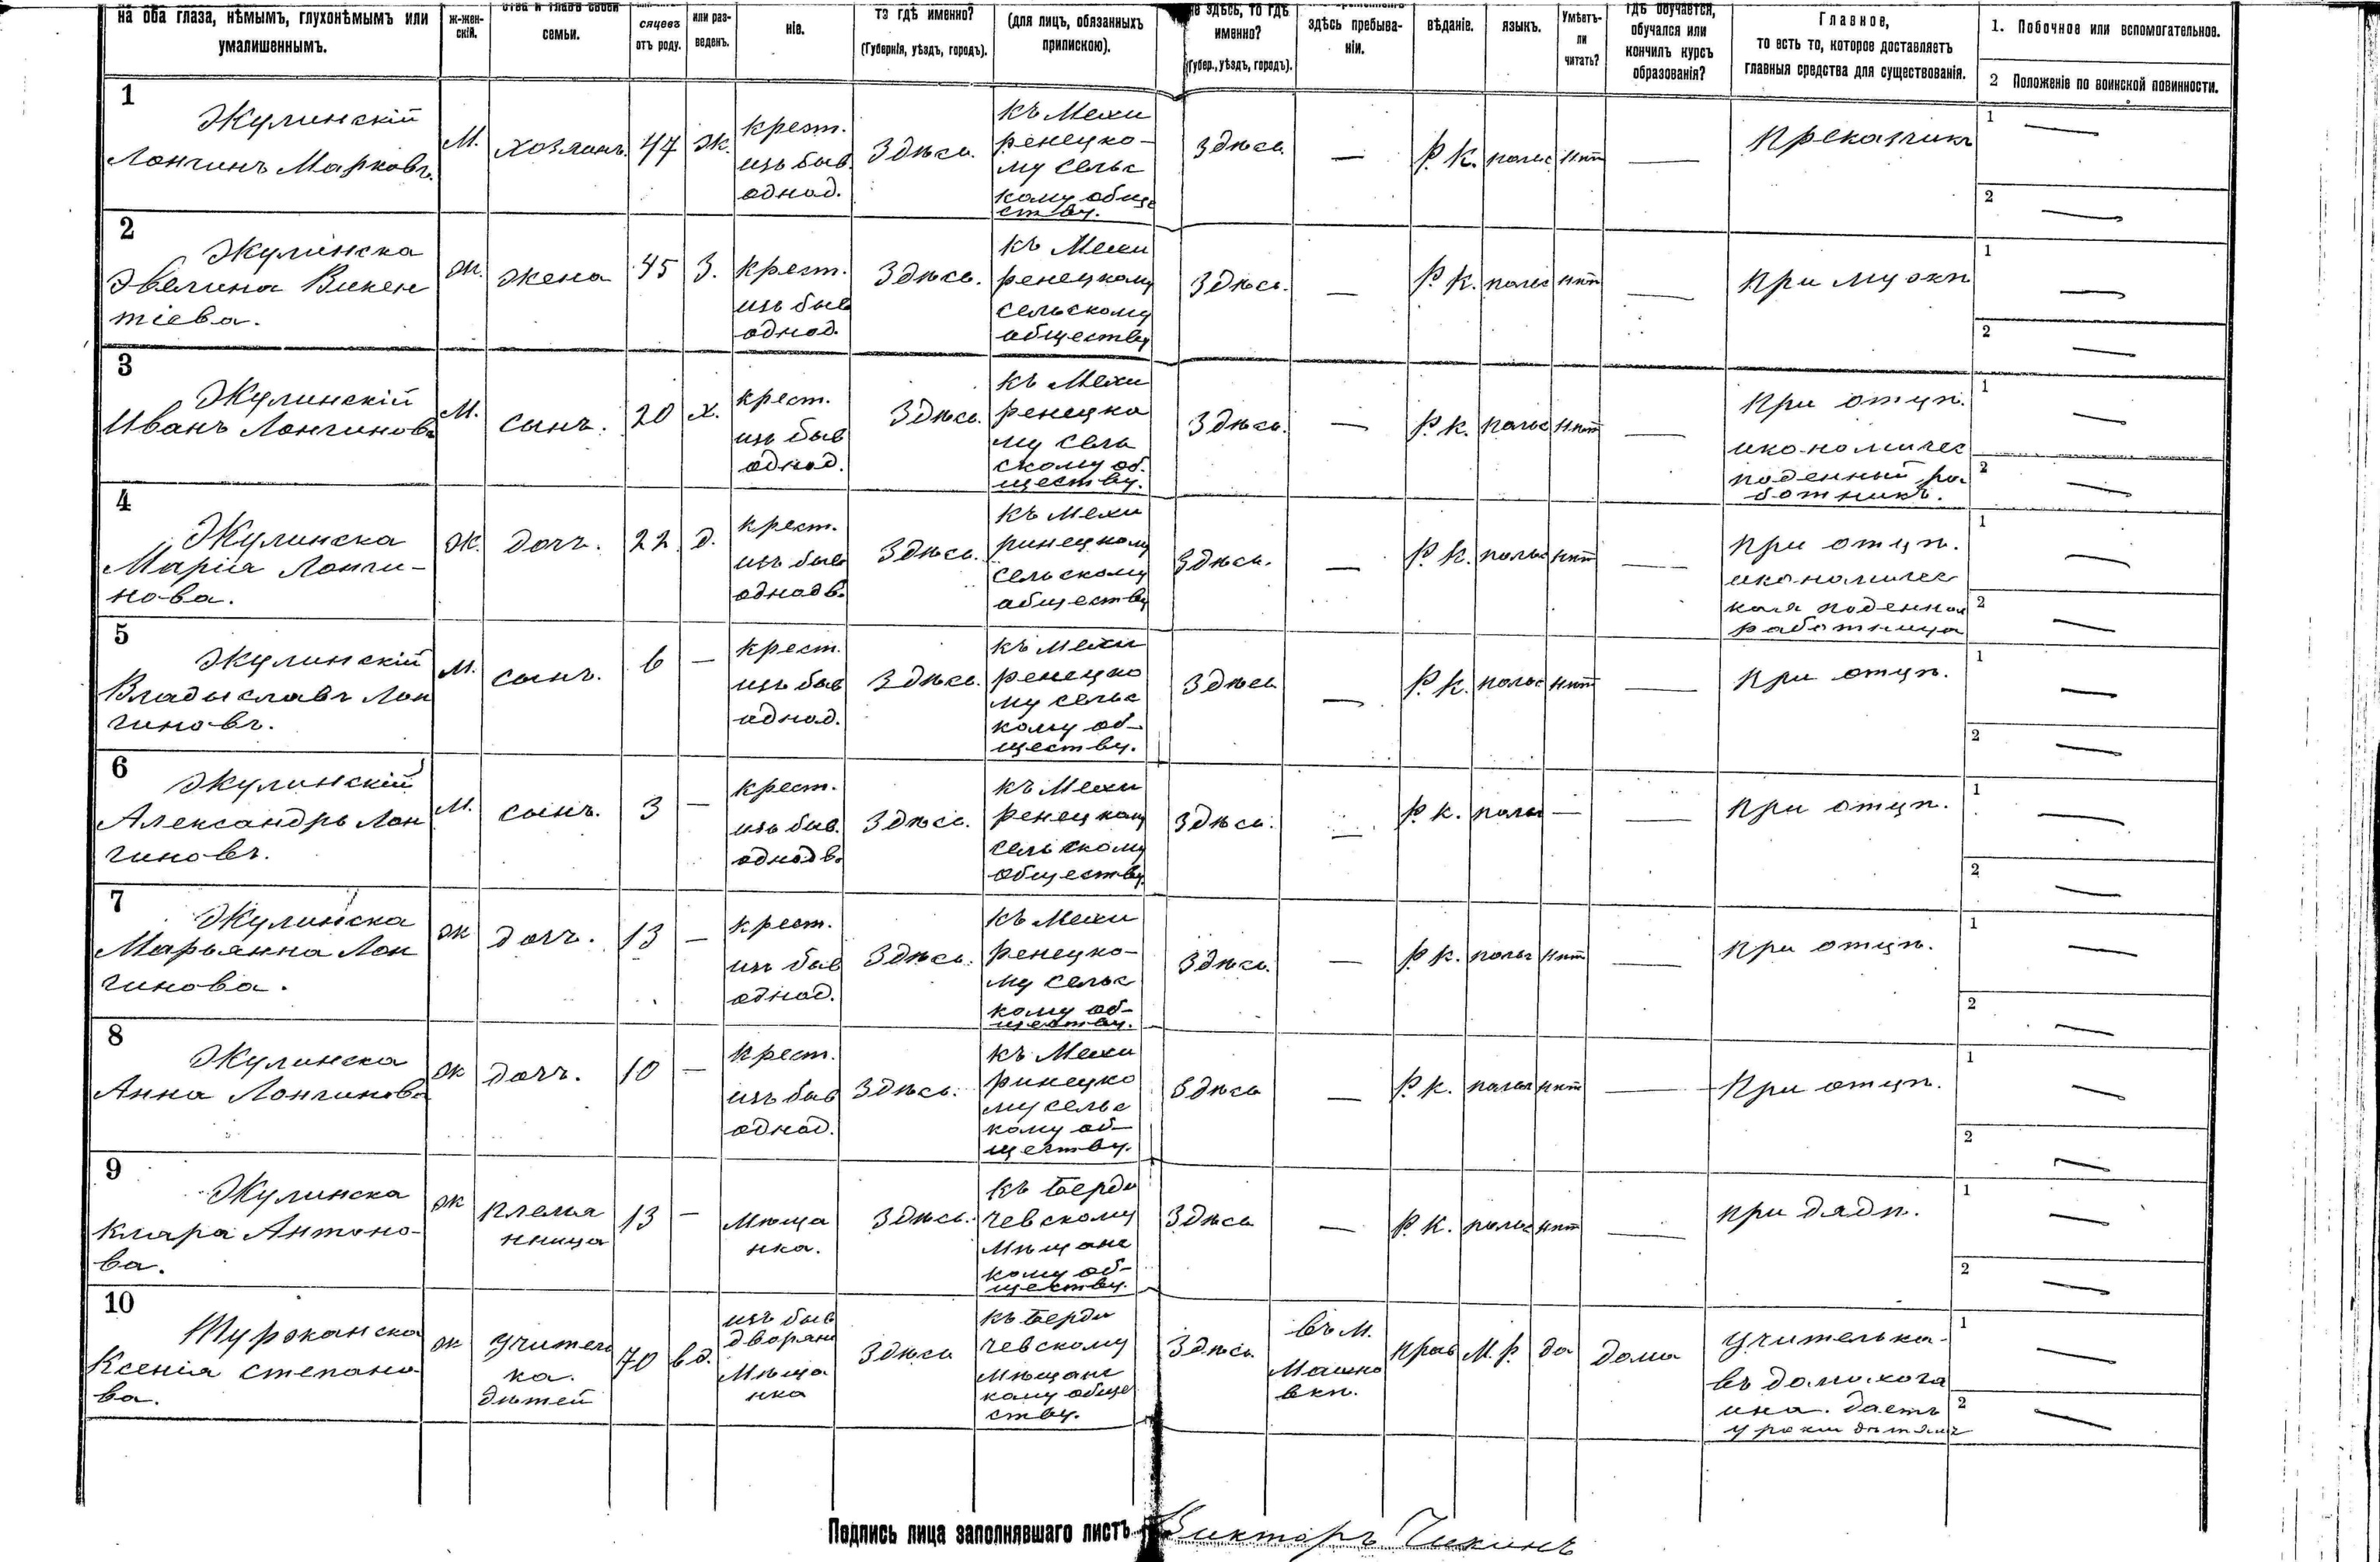 на оба глаза, нѣмымъ, глухонѣмымъ или умалишеннымъ.
ж-жен-скій.
семьи.
сяцевъ отъ роду.
или раз-веденъ.
ніе.
гдѣ именно?
(Губернія, уѣздъ, городъ).
(для лицъ, обязанныхъ припискою).
не здѣсь, то гдѣ именно?
(Губер., уѣздъ, городъ).
здѣсь пребыва-ніи.
вѣданіе.
языкъ.
Умѣетъ-ли читать?
гдѣ обучается, обучался или кончилъ курсъ образованія?
Главное,
то есть то, которое доставляетъ
главныя средства для существованія.
1. Побочное или вспомогательное.
2 Положеніе по воинской повинности.
1
Жулинскій
Лонгинъ Марковъ.
М. хозяинъ. 47 ж.
крест.
изъ быв.
однод.
Здѣсь.
къ Мехи
ренецко-
му сельс
кому обще
ству.
Здѣсь — Р. К. польс нѣт —
Прикащикъ
1 —
2 —
2
Жулинска
Эвелина Викен
тіева.
ж. жена 45 З.
крест.
изъ быв
однод.
Здѣсь.
къ Мехи
ренецкому
сельскому
обществу
Здѣсь. — Р. К. польс нѣт —
при мужѣ
1 —
2 —
3
Жулинскій
Иванъ Лонгиновъ
М. сынъ. 20 х.
крест.
изъ быв
однод.
Здѣсь.
къ Мехи
ренецко
му сель
скому об.
ществу.
Здѣсь. — Р. К. польс нѣт —
при отцѣ.
икономичес
поденный ра
ботникъ.
1 —
2 —
4
Жулинска
Марія Лонги-
нова.
ж. дочь. 22. д.
крест.
изъ быв
однодв.
Здѣсь.
къ Мехи
ринецкому
сельскому
обществу
Здѣсь. — Р. К. польс нѣт —
при отцѣ.
икономичес
кая поденная
работница
1 —
2 —
5
Жулинскій
Владыславъ Лон
гиновъ.
М. сынъ. 6 —
крест.
изъ быв
однод.
Здѣсь.
къ Мехи
ренецко
му сельс
кому об-
ществу.
Здѣсь — Р. К. польс нѣт —
при отцѣ.
1 —
2 —
6
Жулинскій
Александръ Лон
гиновъ.
М. сынъ. 3 —
крест.
изъ быв.
однодв.
Здѣсь.
къ Мехи
ренецкому
сельскому
обществу.
Здѣсь. — Р. К. польс — —
при отцѣ.
1 —
2 —
7
Жулинска
Марьянна Лон
гинова.
ж дочь. 13 —
крест.
изъ быв
однод.
Здѣсь.
къ Мехи
ренецко-
му сельс
кому об-
ществу.
Здѣсь. — Р. К. польс нѣт —
при отцѣ.
1 —
2 —
8
Жулинска
Анна Лонгинова
ж дочь. 10 —
крест.
изъ быв
однод.
Здѣсь.
къ Мехи
ринецко
му сельс
кому об-
ществу.
Здѣсь — Р. К. польс нѣт —
при отцѣ.
1 —
2 —
9
Жулинска
Клара Антоно-
ва.
ж
племя
нница
13 —
Мѣща
нка.
Здѣсь.
къ Берди
чевскому
Мѣщанс
кому об-
ществу.
Здѣсь — Р. К. польс нѣт —
при дядѣ.
1 —
2 —
10
Ксенія Степано-
ва.
ж
учител
ка.
дѣтей
70 вд.
изъ быв
дворян
Мѣща
нка
Здѣсь
къ Берди
чевскому
Мѣщанс
кому обще
ству.
Здѣсь
въ М.
Махно
вкѣ.
прав М. р. да дома
учителька
въ дома хозя
ина. даетъ
уроки дѣтямъ
1 —
2 —
Подпись лица заполнявшаго листъ Викторъ